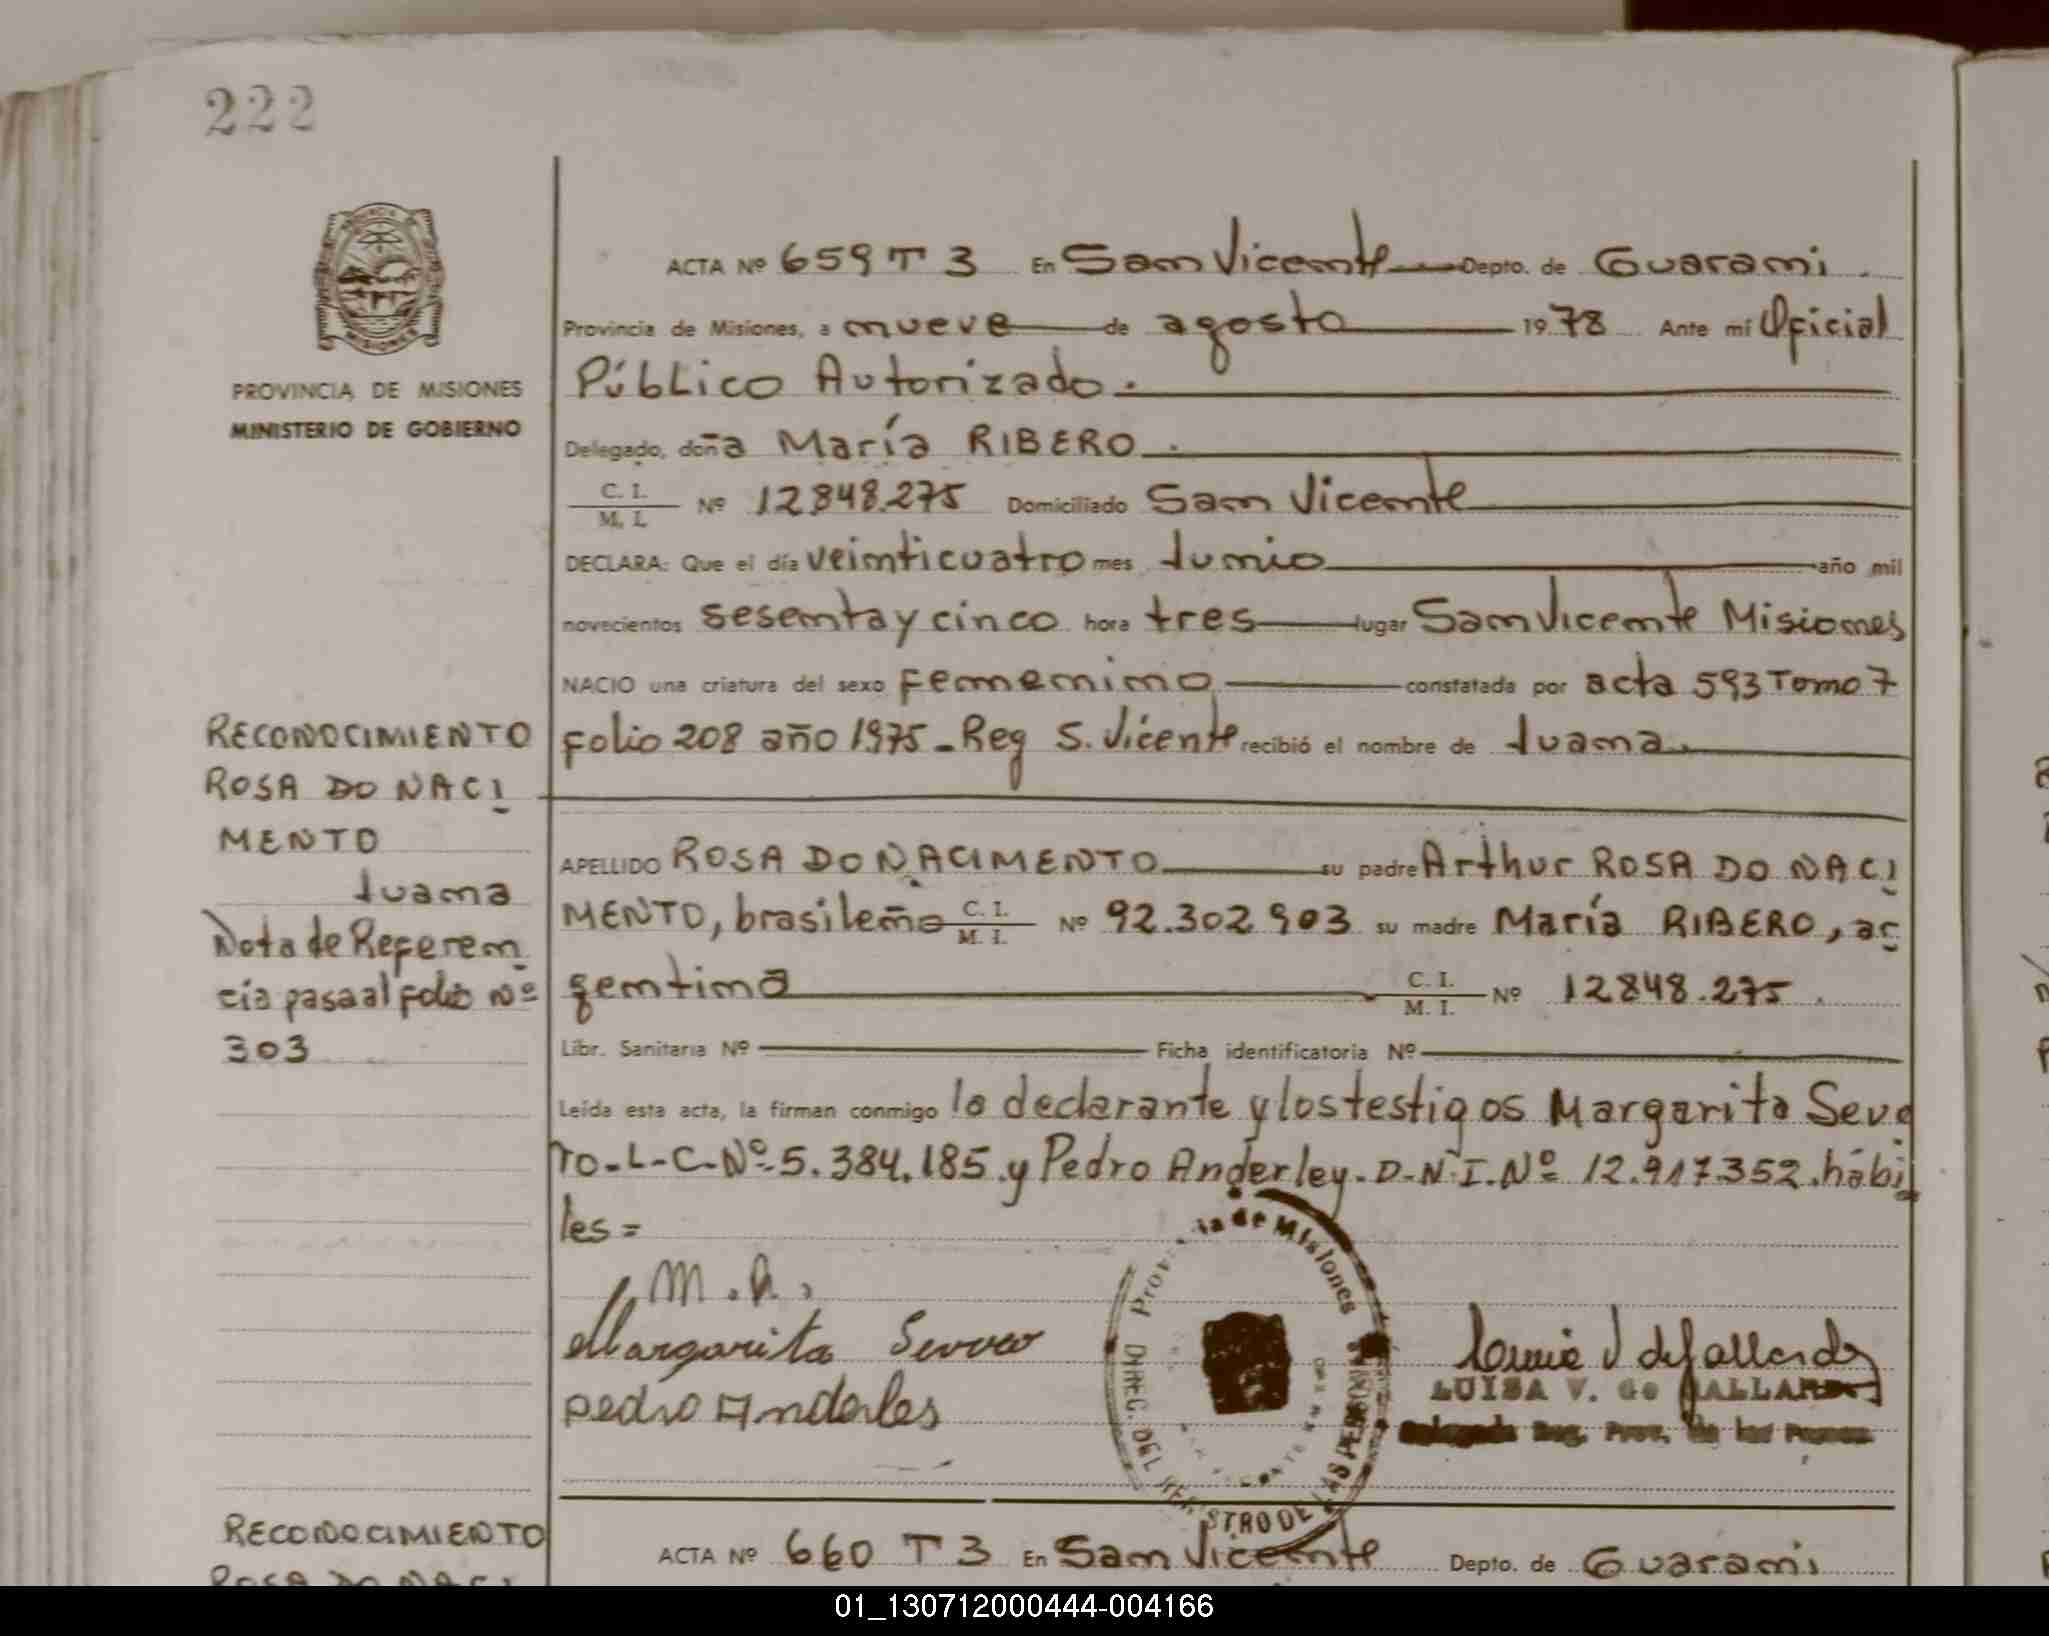 222
PROVINCIA DE MISIONES
MINISTERIO DE GOBIERNO
ACTA Nº 659 T 3 En San Vicente Depto. de Guarani.
Provincia de Misiones, a nueve de agosto 1978 Ante mí Oficial
Público Autorizado.
Delegado, doña María RIBERO.
C. I.
M. I. Nº 12848.275 Domiciliado San Vicente
DECLARA: Que el día veinticuatro mes Junio año mil
novecientos sesenta y cinco hora tres lugar San Vicente Misiones
NACIO una criatura del sexo femenino constatada por acta 593 Tomo 7
folio 208 año 1975 - Reg S. Vicente recibió el nombre de Juana.
APELLIDO ROSA DO NACIMENTO su padre Arthur ROSA DO NACI
MENTO, brasileño C. I.
M. I. Nº 92.302.903 su madre María RIBERO, ar
gentina C. I.
M. I. Nº 12848.275.
Libr. Sanitaria Nº Ficha identificatoria Nº
Leída esta acta, la firman conmigo la declarante y los testigos Margarita Seve
ro-L-C-Nº-5.384.185 y Pedro Anderley-D-N-I.Nº 12.917352.hábi
les=
RECONOCIMIENTO
ROSA DO NACI
MENTO
Juana
Nota de Referen
cia pasa al folio Nº
303
M. R.
Margarita
pedro
Provincia de Misiones
DIREC. DEL REGISTRO DE LAS PERSONAS
LUISA V. de GALLARDO
Delegada Reg. Prov. de las Person
RECONOCIMIENTO
ROSA DO NACI
ACTA Nº 660 T 3 En San Vicente Depto. de Guarani
01_130712000444-004166